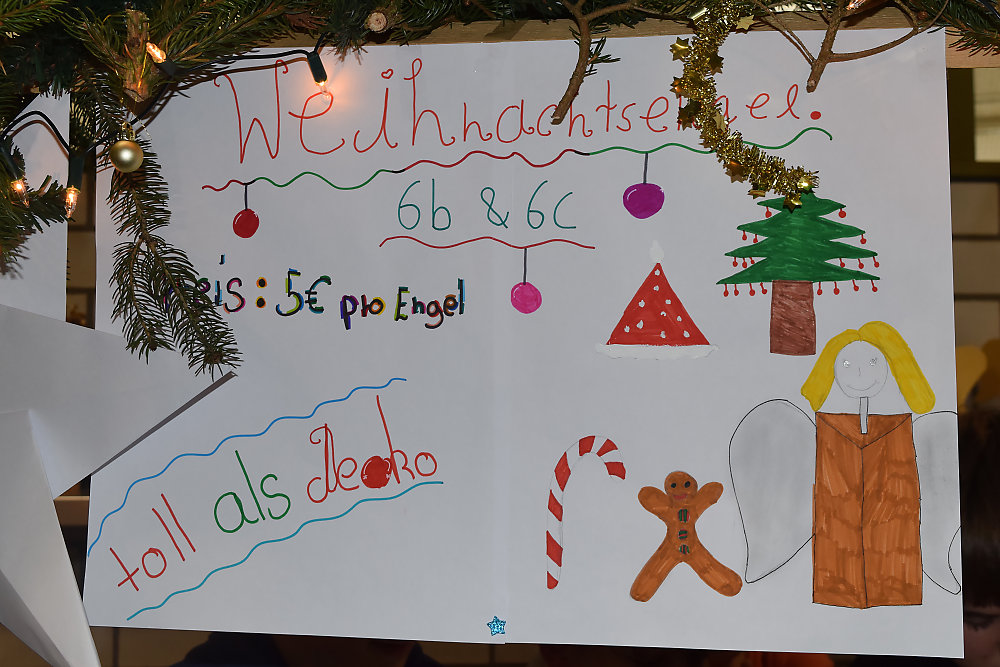 Weihnachtsengel.
6b & 6c
eis : 5€ pro Engel
toll als deko